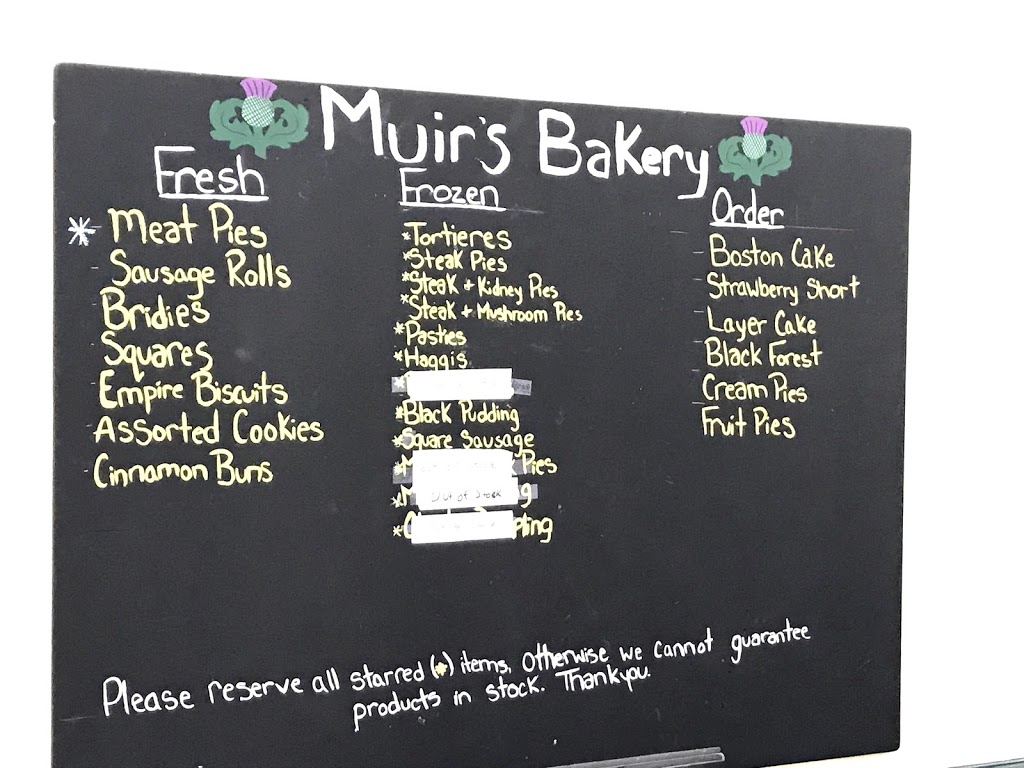 Muir's Bakery
Fresh
* Meat Pies
- Sausage Rolls
- Bridies
- Squares
- Empire Biscuits
- Assorted Cookies
- Cinnamon Buns
Frozen
*Tortieres
*Steak Pies
*Steak + Kidney Pies
*Steak + Mushroom Pies
*Pasties
*Haggis
*Black Pudding
*Square Sausage
Pies
Out of Stock
Order
- Boston Cake
- Strawberry Short
- Layer Cake
- Black Forest
- Cream Pies
- Fruit Pies
Please reserve all starred (*) items, Otherwise we cannot guarantee
products in stock. Thankyou.